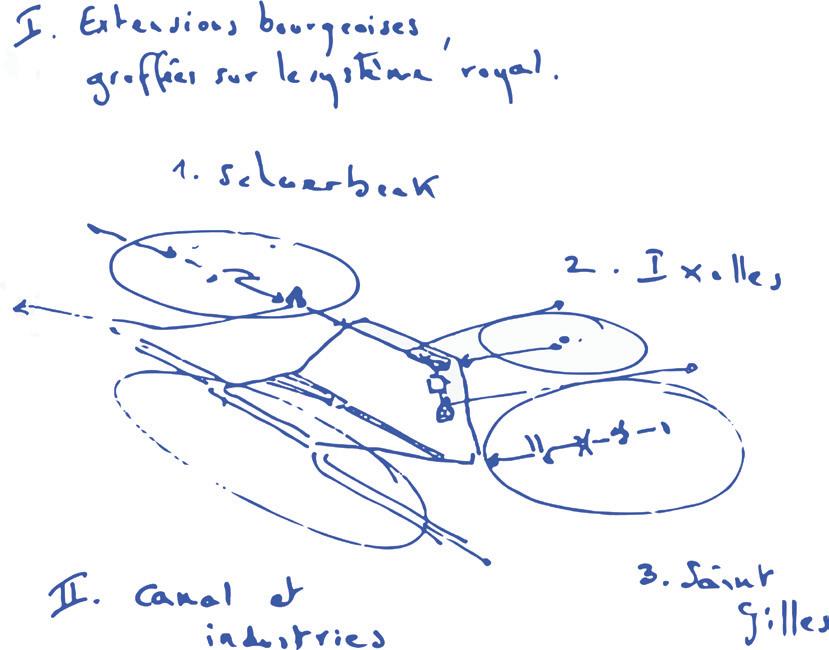 I. Extensions bourgeoises,
greffées sur le système royal.
1. Schaerbeek
2. Ixelles
II. Canal et
industries
3. Saint
Gilles